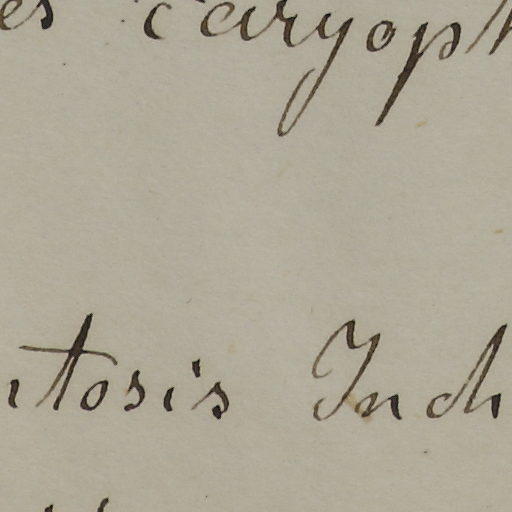 es caryoph
itosis Ind